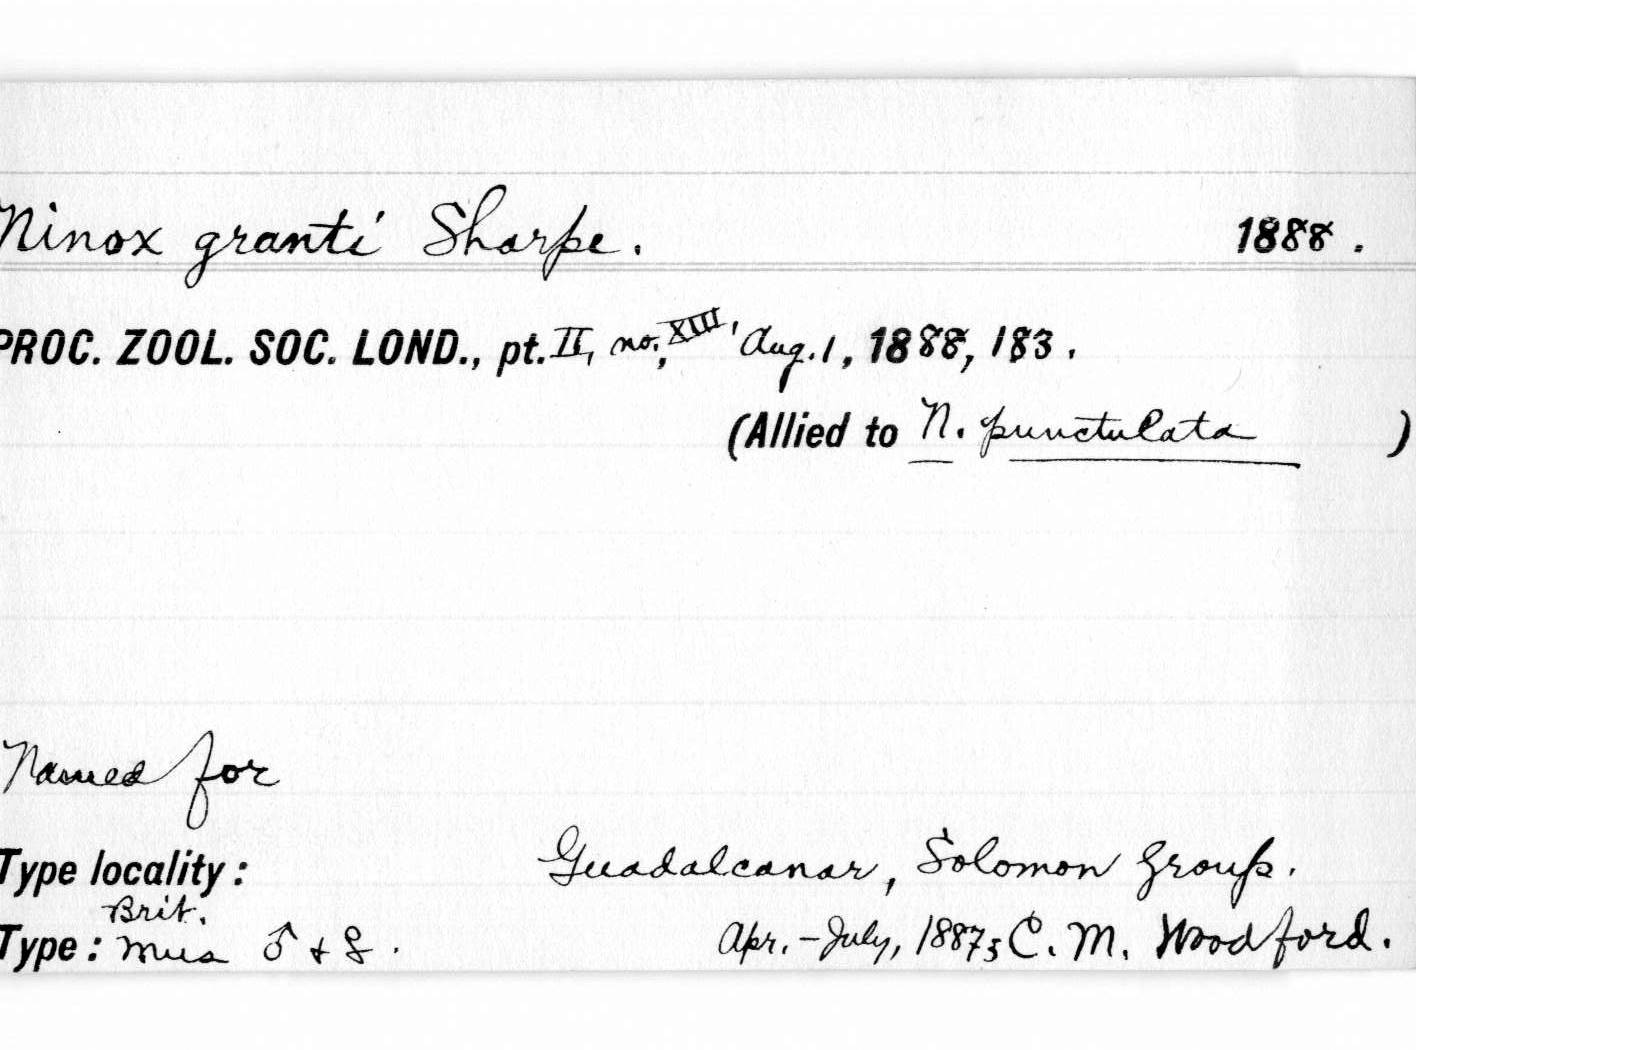 Ninox granti Sharpe. 1888.
PROC. ZOOL. SOC. LOND., pt. II, no., XIII, Aug. 1, 1888, 183.
(Allied to N. punctulata )
Named for
Type locality: Guadalcanar, Solomon Group.
Brit.
Type: Mus ♂ + ♀. Apr. - July, 1887; C. M. Woodford.